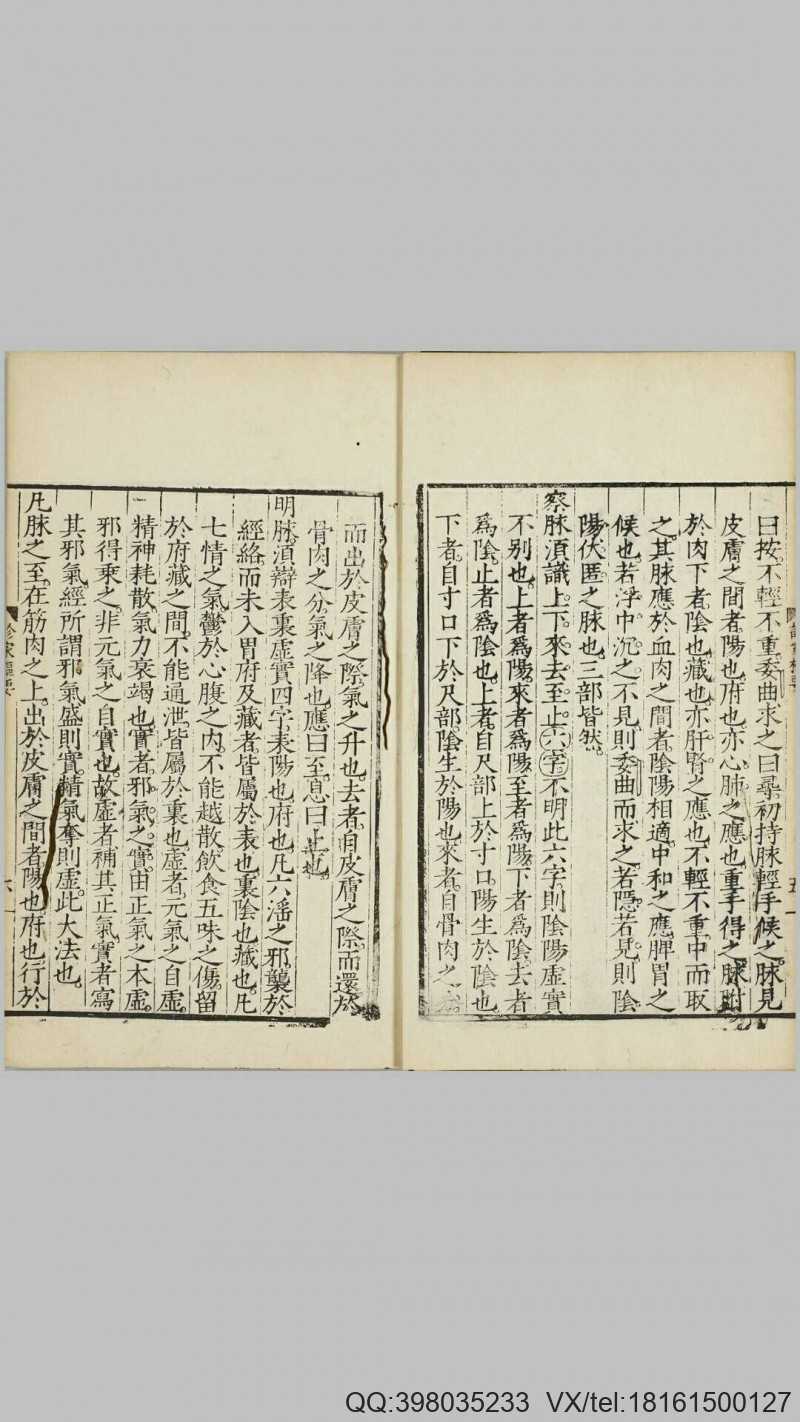 曰按不輕不重委曲求之曰尋初持脉輕手候之脉見
皮膚之間者陽也府也亦心肺之應也重手得之脉附
於肉下者陰也藏也亦肝腎之應也不輕不重中而取
之其脉應於血肉之間者陰陽相適中和之應脾胃之
候也若浮中沉之不見則委曲而求之若隱若見則陰
陽伏匿之脉也三部皆然
察脉須識上下來去至止六字不明此六字則陰陽虛實
不别也上者爲陽來者爲陽至者爲陽下者爲陰去者
爲陰止者爲陰也上者自尺部上於寸口陽生於陰也
下者自寸口下於尺部陰生於陽也來者自骨肉之
而出於皮膚之際氣之升也去者自皮膚之際而還於
骨肉之分氣之降也應曰至息曰止也
明脉須辯表裏虛實四字表陽也府也凡六淫之邪襲於
經絡而未入胃府及藏者皆屬於表也裏陰也藏也凡
七情之氣鬱於心腹之内不能越散飲食五味之傷留
於府藏之間不能通泄皆屬於裏也虛者元氣之自虛
精神耗散氣力衰竭也實者邪氣之實由正氣之本虛
邪得乘之非元氣之自實也故虛者補其正氣實者寫
其邪氣經所謂邪氣盛則實精氣奪則虛此大法也
凡脉之至在筋肉之上出於皮膚之間者陽也府也行於
QQ:398035233 VX/tel:18161500127